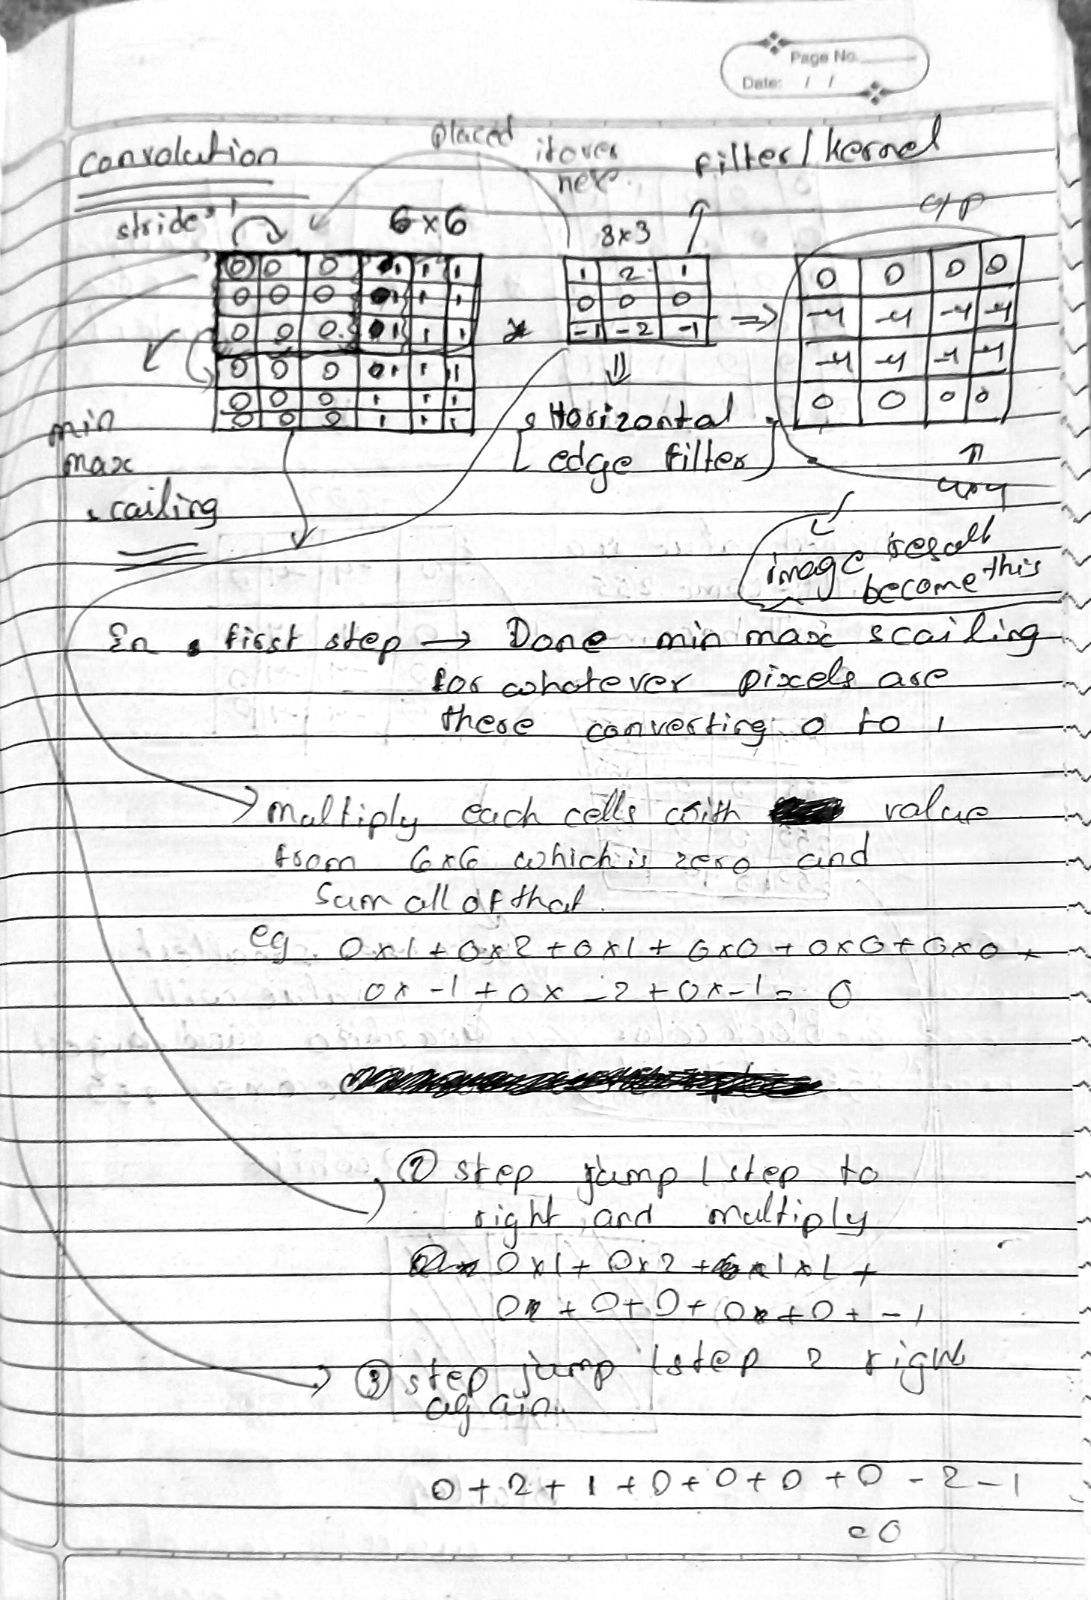 Page No.
Date: / /
placed it over here.
filter/kernel
convolution
stride 1
6×6
3×3
o/p
0 0 0 1 1 1
0 0 0 1 1 1
0 0 0 1 1 1
0 0 0 1 1 1
0 0 0 1 1 1
0 0 0 1 1 1
*
1 2 1
0 0 0
-1 -2 -1
⇒
0 0 0 0
-4 -4 -4 -4
-4 -4 -4 -4
0 0 0 0
Horizontal
edge filter
4×4
min
max
scailing
image result
become this
In first step → Done min max scailing
for whatever pixels are
there converting 0 to 1
multiply each cells with value
from 6×6 which is zero and
sum all of that.
eg. 0×1+0×2+0×1+0×0+0×0+0×0+
0×-1+0×-2+0×-1=0
② step jump 1 step to
right and multiply
0×1+0×2+1×1+
0+0+0+0+0+-1
③ step jump 1 step 2 right
again.
0+2+1+0+0+0+0-2-1
=0